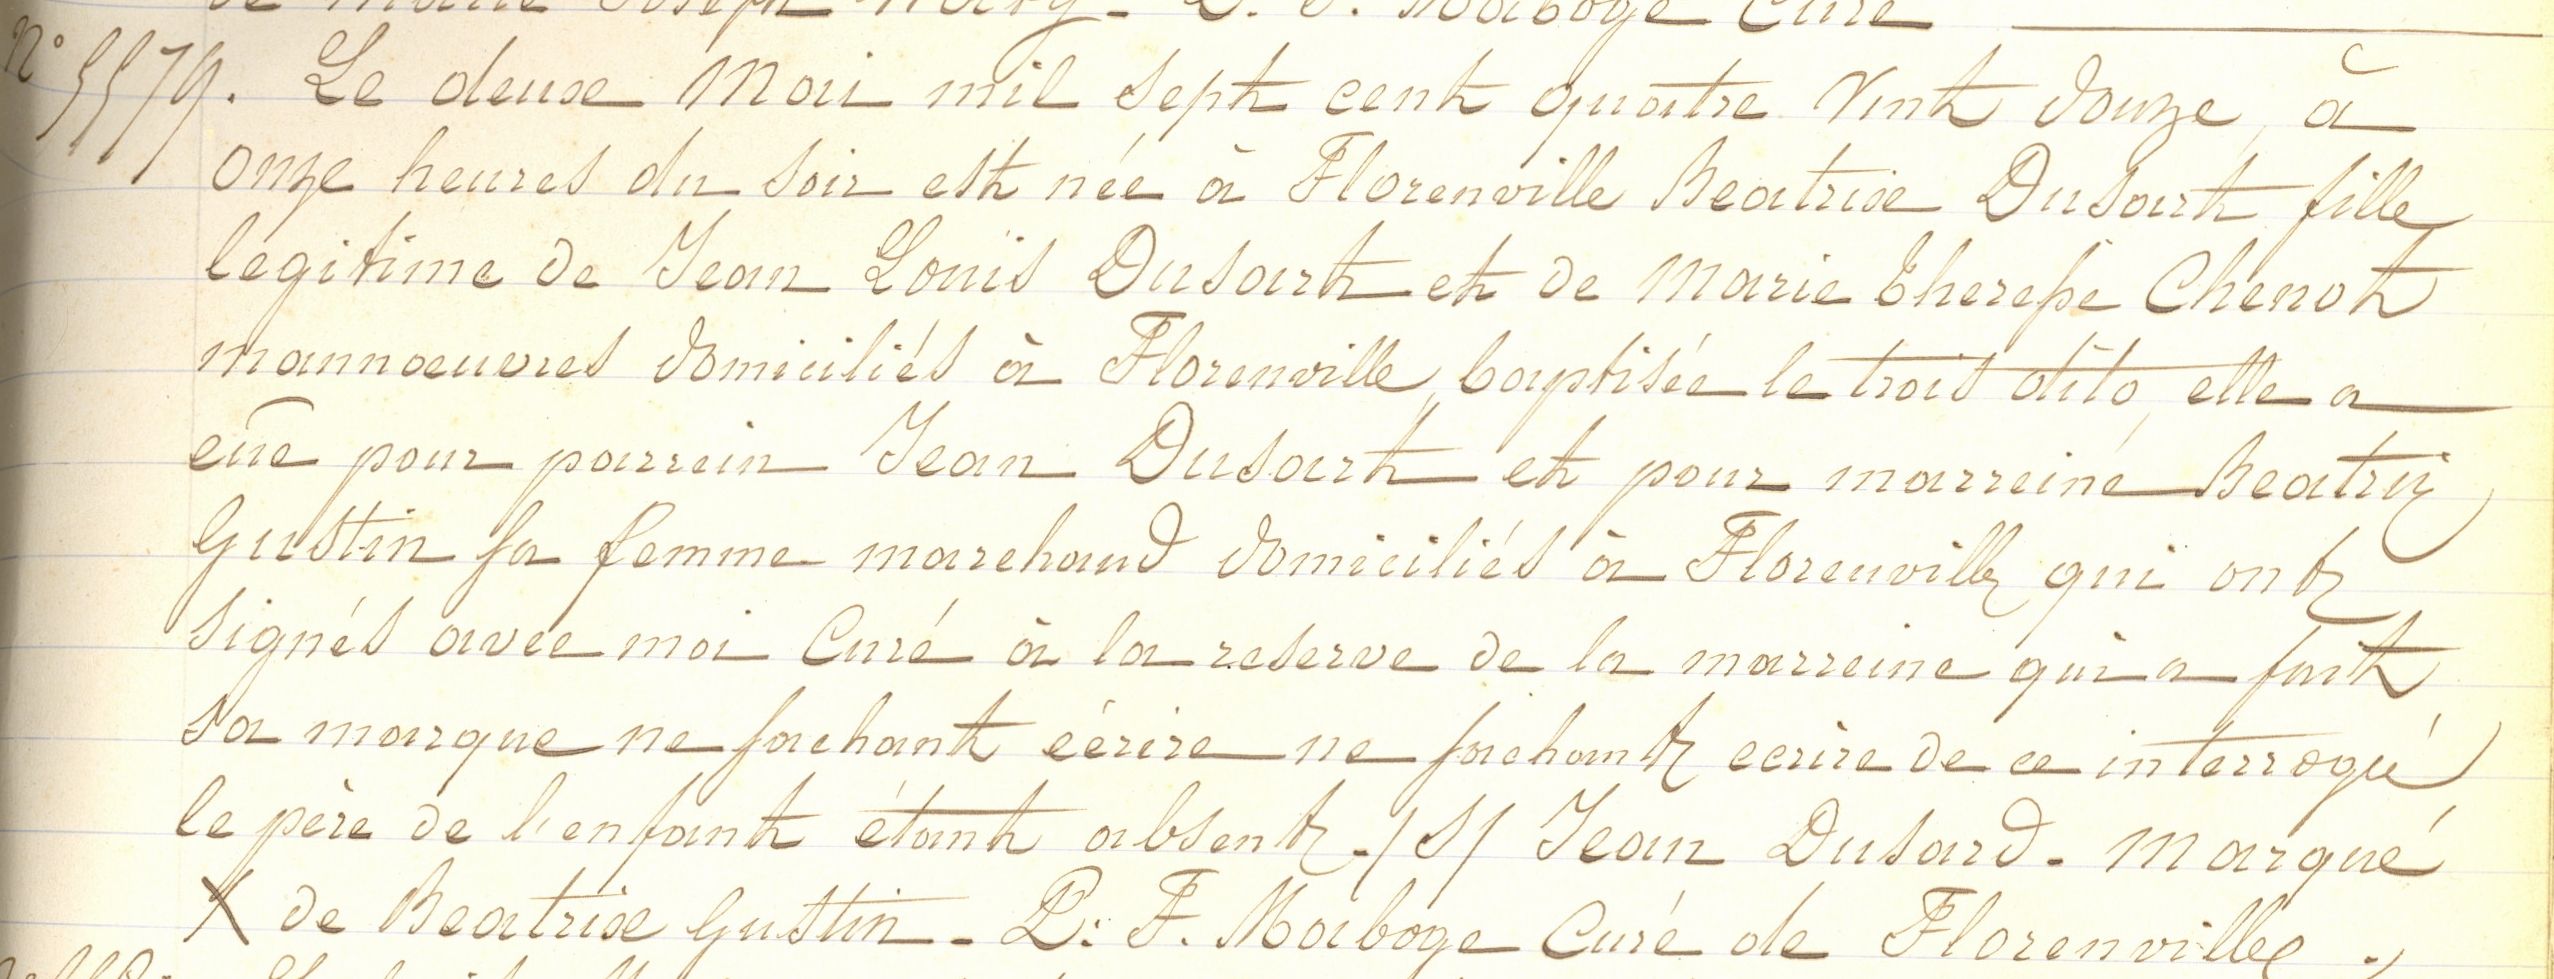 de Marie Joseph P. F. Maboge Curé
N° 5579. Le deuxe Mai mil sept cent quatre vint douze, à
onze heures du soir est née à Florenville Beatrix Dusart fille
legitime de Jean Louis Dusart et de Marie Therese Chenot
mannœuvres domiciliés à Florenville, baptisée le trois dito, elle a
eüe pour parrein Jean Dusart et pour marreine Beatrix
Gustin sa femme marchand domiciliés à Florenville qui ont
signés avec moi Curé à la reserve de la marreine qui a fait
sa marque ne sachant écrire ne sachant ecrire de ce interrogué
le père de l'enfant étant absent. /S/ Jean Dusard. Marqué
X de Beatrix Gustin. P. F. Maboge Curé de Florenville.